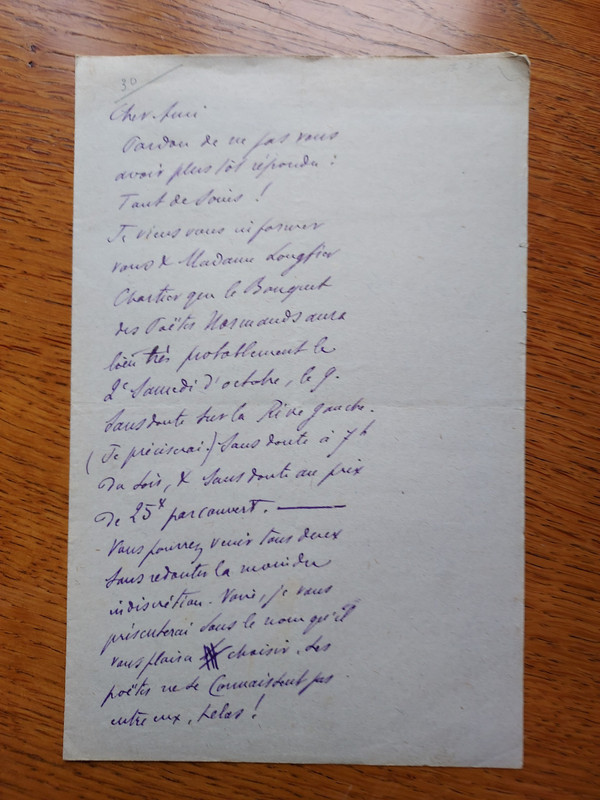 30
Cher Ami
Pardon de ne pas vous
avoir plus tôt répondu :
Tant de soucis !
Je viens vous informer
vous & Madame Longfier
Chartier que le Banquet
des Poëtes Normands aura
lieu très probablement le
2e Samedi d'octobre, le 9.
Sans doute sur la Rive gauche.
(Je préciserai.) Sans doute à 7h
du soir, & sans doute au prix
de 25 par couvert. —
- Vous pourrez venir tous deux
sans redouter la moindre
indiscrétion. Vous, je vous
présenterai sous le nom qu'il
vous plaira choisir. Les
poëtes ne se connaissent pas
entre eux, hélas !